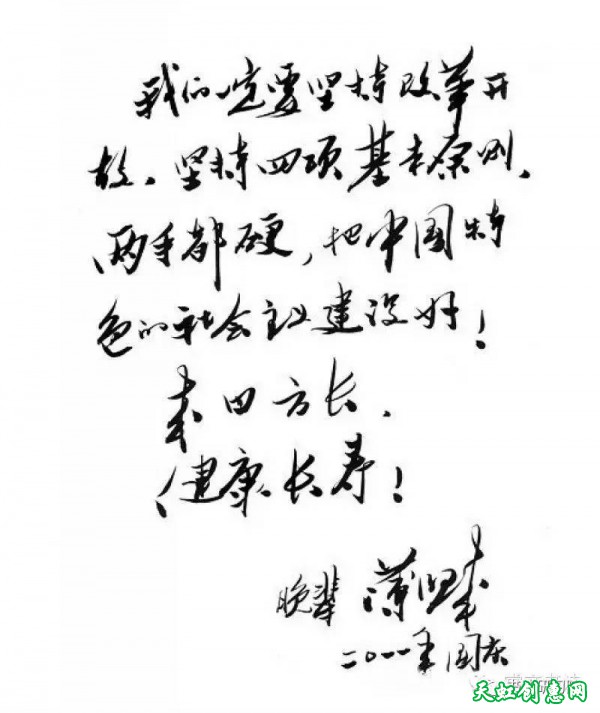 我们一定要坚持改革开
放、坚持四项基本原则、
两手都硬,把中国特
色的社会主义建设好!
来日方长、
健康长寿!
晚辈 薄熙来
二〇一一年国庆
天虹创意网